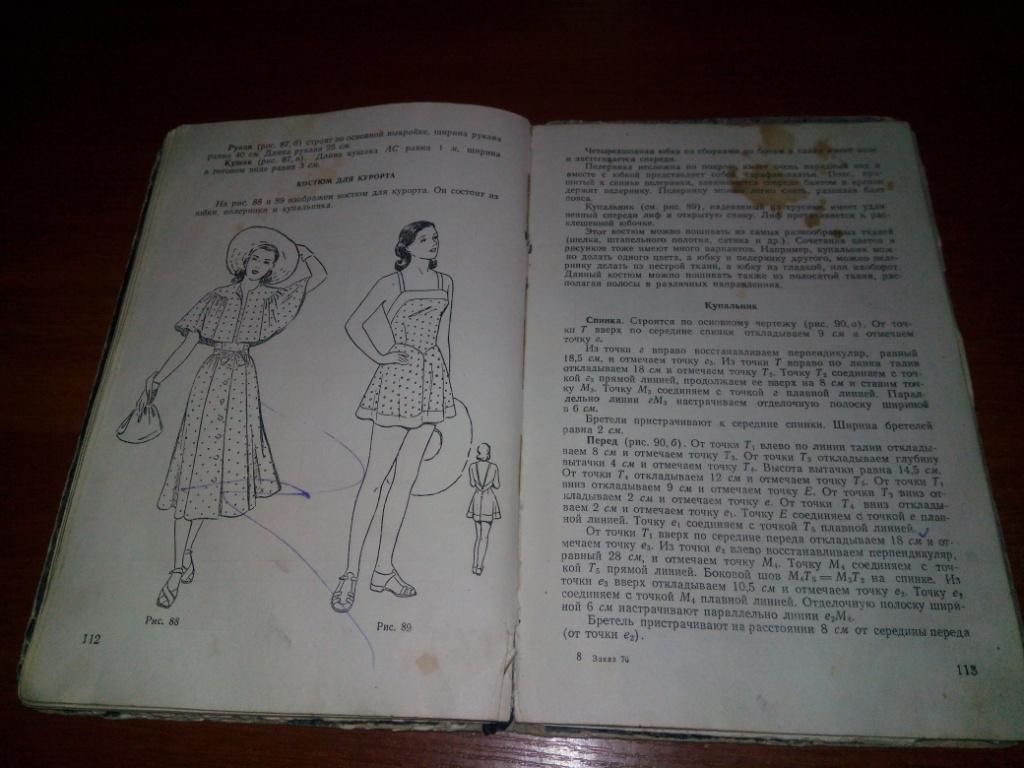 Рукав (рис. 87, б) строят по основной выкройке, ширина рукава
равна 40 см. Длина рукава 25 см.
Кушак (рис. 87, в). Длина кушака АС равна 1 м, ширина
в готовом виде равна 3 см.
КОСТЮМ ДЛЯ КУРОРТА
На рис. 88 и 89 изображен костюм для курорта. Он состоит из
юбки, пелеринки и купальника.
Рис. 88
Рис. 89
112
Четырехшовная юбка со сборками по бокам в талии имеет пояс
и застегивается спереди.
Пелеринка несложна по покрою, имеет очень нарядный вид и
вместе с юбкой представляет собой сарафан-платье. Пояс, при-
шитый к спинке пелеринки, завязывается спереди бантом и крепко
держит пелеринку. Пелеринку можно легко снять, развязав бант
пояса.
Купальник (см. рис. 89), надеваемый на трусики, имеет удли-
ненный спереди лиф и открытую спину. Лиф притачивается к рас-
клешенной юбочке.
Этот костюм можно пошивать из самых разнообразных тканей
(шелка, штапельного полотна, сатина и др.). Сочетания цветов и
рисунков тоже имеют много вариантов. Например, купальник мож-
но делать одного цвета, а юбку и пелеринку другого, можно пеле-
ринку делать из пестрой ткани, а юбку из гладкой, или наоборот.
Данный костюм можно пошивать также из полосатой ткани, рас-
полагая полосы в различных направлениях.
Купальник
Спинка. Строится по основному чертежу (рис. 90, а). От точ-
ки Т вверх по середине спинки откладываем 9 см и отмечаем
точку г.
Из точки г вправо восстанавливаем перпендикуляр, равный
18,5 см, и отмечаем точку г₂. Из точки Т вправо по линии талии
откладываем 18 см и отмечаем точку Т₂. Точку Т₂ соединяем с точ-
кой г₂ прямой линией, продолжаем ее вверх на 8 см и ставим точ-
ку М₃. Точку М₃ соединяем с точкой г плавной линией. Парал-
лельно линии гМ₃ настрачиваем отделочную полоску шириной
в 6 см.
Бретели пристрачивают к середине спинки. Ширина бретелей
равна 2 см.
Перед (рис. 90, б). От точки Т₁ влево по линии талии отклады-
ваем 8 см и отмечаем точку Т₃. От точки Т₃ откладываем глубину
вытачки 4 см и отмечаем точку Т₄. Высота вытачки равна 14,5 см.
От точки Т₄ откладываем 12 см и отмечаем точку Т₅. От точки Т₁
вниз откладываем 9 см и отмечаем точку Е. От точки Т₃ вниз от-
кладываем 2 см и отмечаем точку е. От точки Т₄ вниз отклады-
ваем 2 см и отмечаем точку е₁. Точку Е соединяем с точкой е плав-
ной линией. Точку е₁ соединяем с точкой Т₅ плавной линией.
От точки Т₁ вверх по середине переда откладываем 18 см и от-
мечаем точку е₃. Из точки е₂ влево восстанавливаем перпендикуляр,
равный 28 см, и отмечаем точку М₄. Точку М₄ соединяем с точ-
кой Т₅ прямой линией. Боковой шов М₄Т₅ = М₃Т₂ на спинке. Из
точки е₃ вверх откладываем 10,5 см и отмечаем точку е₂. Точку е₂
соединяем с точкой М₄ плавной линией. Отделочную полоску шири-
ной 6 см настрачивают параллельно линии е₂М₄.
Бретель пристрачивают на расстоянии 8 см от середины переда
(от точки е₂).
8 Заказ 76
113